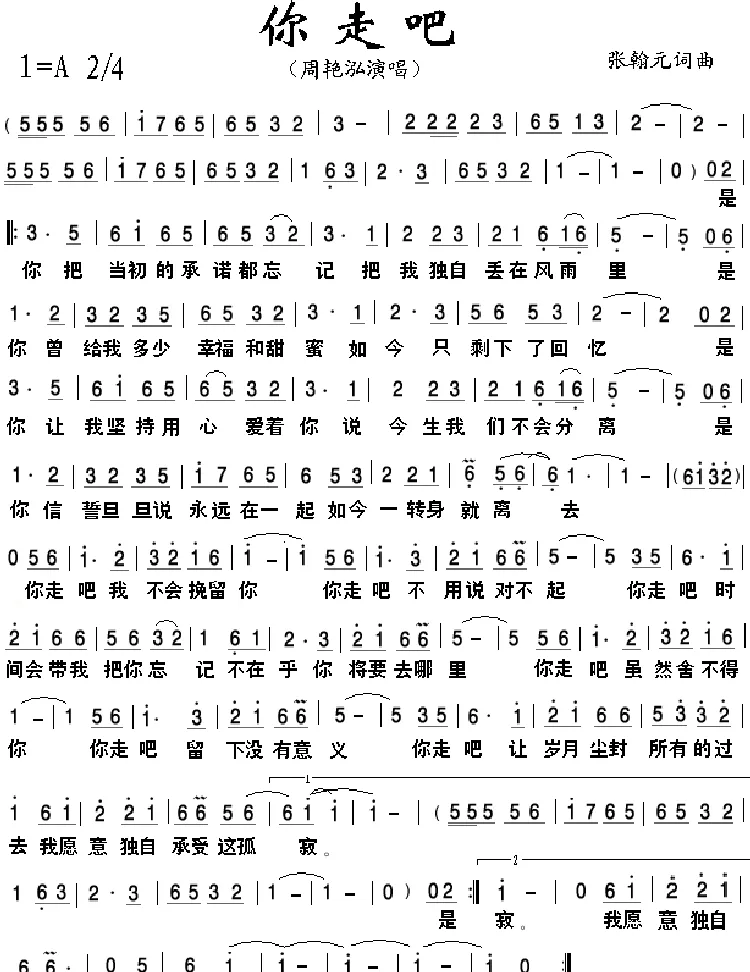 你走吧
（周艳泓演唱）
1=A 2/4
张翰元词曲
( 555 56 | 1765 | 6532 | 3 - | 2222 23 | 6513 | 2 - | 2 - |
555 56 | 1765 | 6532 | 1 63 | 2 · 3 | 6532 | 1 - | 1 - | 0 ) 02 |
是
3 · 5 | 61 65 | 6532 | 3 · 1 | 2 23 | 21 616 | 5 - | 5 06 |
你把当初的承诺都忘记把我独自丢在风雨里是
1 · 2 | 32 35 | 65 32 | 3 · 1 | 2 · 3 | 56 53 | 2 - | 2 02 |
你曾给我多少幸福和甜蜜如今只剩下了回忆是
3 · 5 | 61 65 | 65 32 | 3 · 1 | 2 23 | 21 616 | 5 - | 5 06 |
你让我坚持用心爱着你说今生我们不会分离是
1 · 2 | 32 35 | 17 65 | 6 53 | 2 21 | 6 56 | 6 1 · | 1 - | (6132)
你信誓旦旦说永远在一起如今一转身就离去
0 56 | 1 · 2 | 32 16 | 1 - | 1 56 | 1 · 3 | 21 66 | 5 - | 5 35 | 6 · 1
你走吧我不会挽留你你走吧不用说对不起你走吧时
21 66 | 56 32 | 1 61 | 2 · 3 | 21 66 | 5 - | 5 56 | 1 · 2 | 32 16
间会带我把你忘记不在乎你将要去哪里你走吧虽然舍不得
1 - | 1 56 | 1 · 3 | 21 66 | 5 - | 5 35 | 6 · 1 | 21 66 | 53 32
你你走吧留下没有意义你走吧让岁月尘封所有的过
1
1 61 | 2 21 | 66 56 | 61 1 | 1 - | ( 555 56 | 1765 | 6532
去我愿意独自承受这孤寂。
2
1 63 | 2 · 3 | 6532 | 1 - | 1 - | 0 ) 02 :| 1 - | 0 61 | 2 21
是寂。我愿意独自
6 66 | 05 6 | 1 - | 1 - | 1 - | 1 0 :|